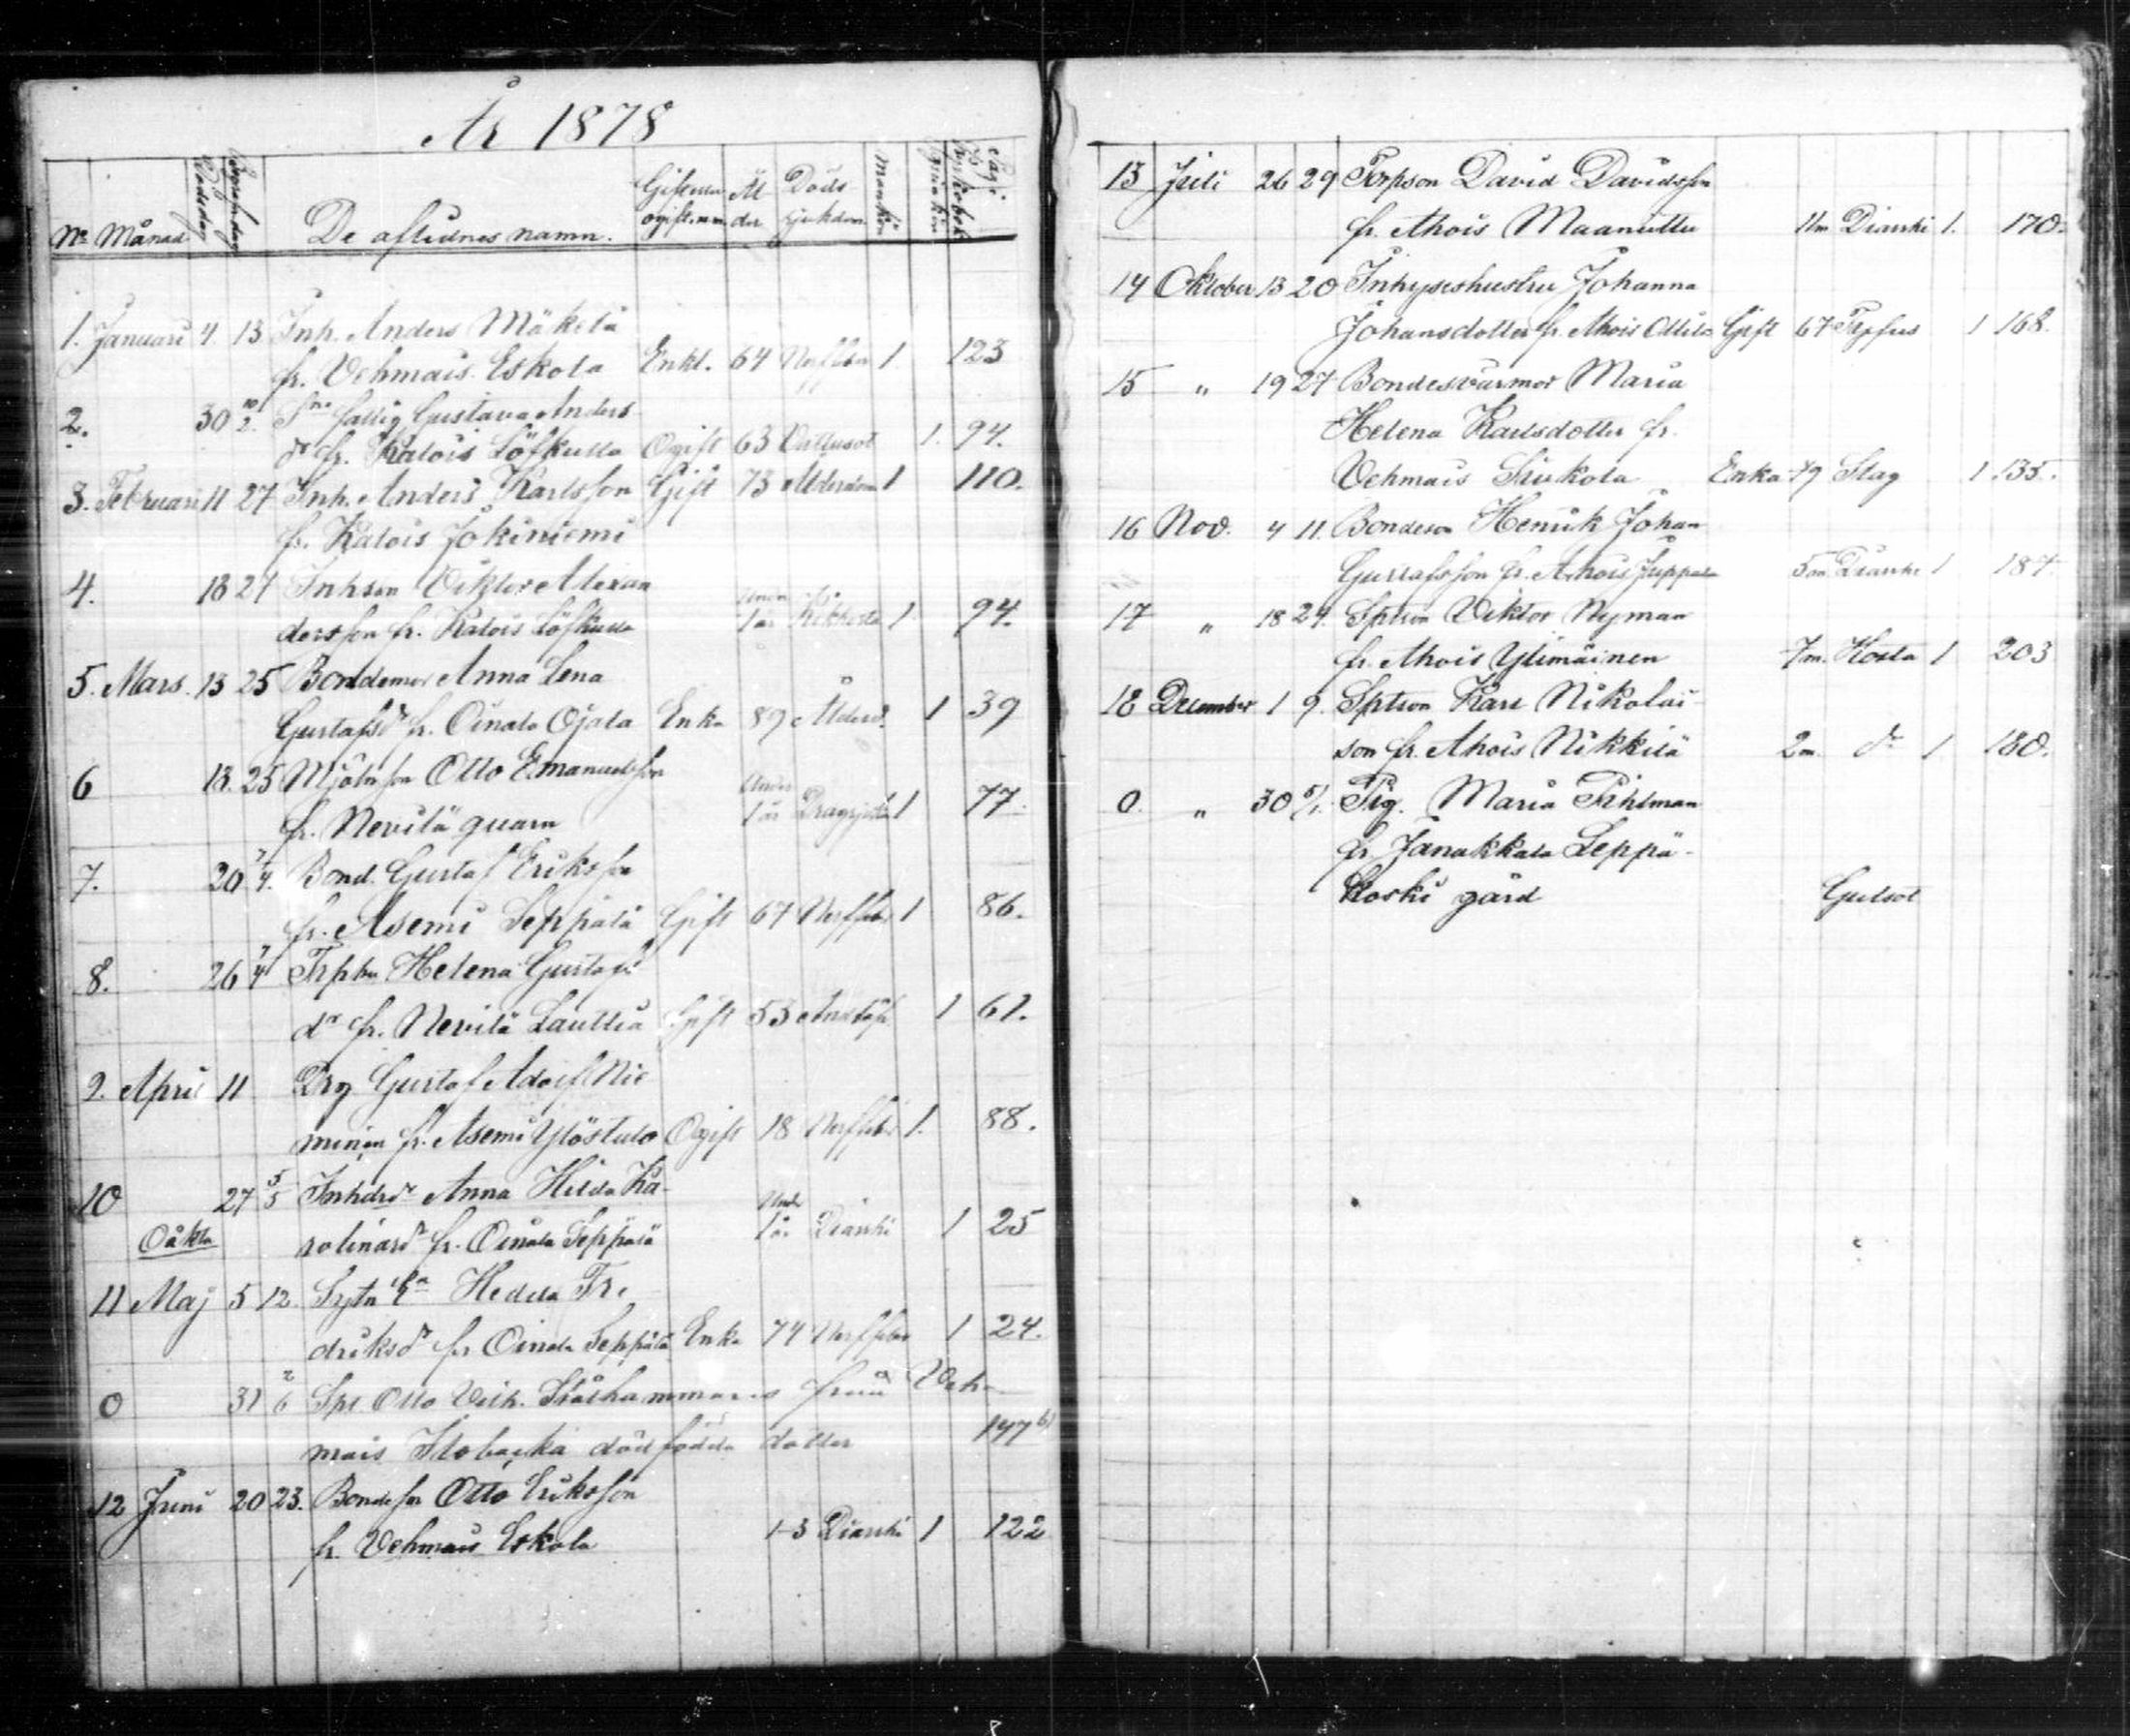 År 1878
No Månad Dödsdag Begrafn.dag De aflidnes namn. Gift eller ogift m.m. Ålder Dödssjukdom Mankön Qvinkön Pag. i Kyrkobok
1. Januari 4. 13 Inh. Anders Mäkelä
fr. Vehmais Eskola Enkl. 64 Nerffeber 1. 123
2. 30 10/2. fattig Gustava Anders
dr fr. Kalois Löfkulla Ogift 63 Vattusot 1. 94.
3. Februari 11 27 Inh. Anders Karlsson Gift 73 Ålderdom 1 110.
fr. Kalois Jokiniemi
4. 18 27 Inhson Viktor Alexan
dersson fr. Kalois Löfkulla Under 1 år Kikhosta 1 94.
5. Mars. 13 25 Bondemor Anna Lena
Gustafsdr fr. Oinala Ojala Enka 89 Ålderd. 1 39
6 18. 25 Mjölnson Otto Emanuelsson
fr. Nevilä quarn Under 1 år Dragsjuka 1 77.
7. 20 7/4. Bond. Gustaf Eriksson
fr. Asemi Seppälä Gift 67 Nerffeber 1 86.
8. 26 7/4 Trphu Helena Gustafs
dr fr. Nevilä Lauttia Gift 53 Andtäp. 1 61.
9. April 11 Drg Gustaf Adolf Nie
minen fr. Asemi Ylöstalo Ogift 18 Nerffeber 1. 88.
10 27 5/5 Inhdr Anna Hilda Ka-
Oäkta rolinasdr fr. Oinala Seppälä Under 1 år Diarrhé 1 25
11 Maj 5 12. Hedda Fre
driksdr fr Oinala Seppälä Enka 74 Nerffeber 1 24.
0 31 2/6 Spt Otto Vilh. Stålhammares från Veh-
mais Ilobacka dödfödda dotter 147 b)
12 Juni 20 23. Bondeson Otto Eriksson
fr. Vehmais Eskola 1-3 Diarrhé 1 122
13 Juli 26 29 Torpson David Davidsson
fr. Ahois Maanittu 11m Diarrhé 1. 170.
14 Oktober 13 20 Inhyseshustru Johanna
Johansdotter fr. Ahois Ollila Gift 67 Typhus 1 168.
15 " 19 27 Bondesvärmor Maria
Helena Karlsdotter fr.
Vehmais Sirkola Enka 79 Slag 1 135.
16 Nov. 4 11. Bondeson Henrik Johan
Gustafsson fr. Ahois Juppala 5m Diarrhé 1 187.
17 " 18 24. Sptson Viktor Nyman
fr. Ahois Ylimäinen 7m. Hosta 1 203
18 December 1 9. Sptson Karl Nikolai-
son fr. Ahois Nikkilä 2m. do 1 180.
0. " 30 5/1. Pig. Maria Pihlman
fr. Janakkala Leppä-
koski gård Gulsot